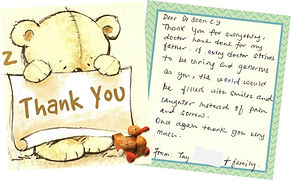 Z
Thank You
Dear Dr Soon C Y
Thank you for everything,
doctor have done for my
father. If every doctor strives
to be caring and generous
as you, the world would
be filled with smiles and
laughter instead of pain
and sorrow.
Once again thank you very
much.
From: Tay + family.